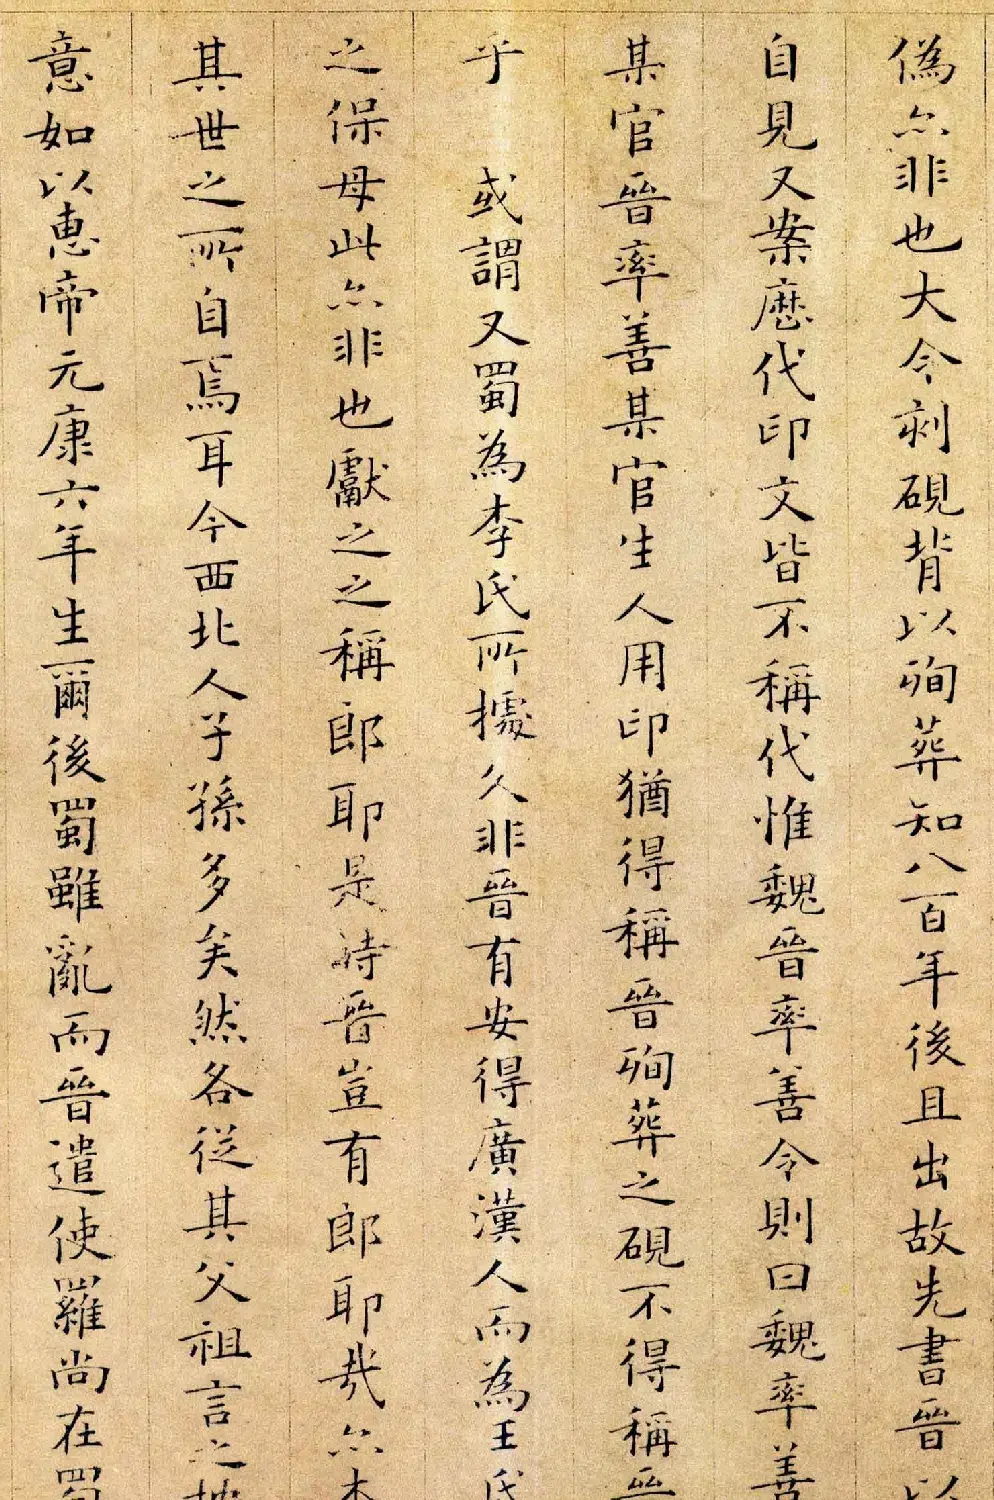 偽亦非也大令刻硯背以殉葬知八百年後且出故先書晉以
自見又案歷代印文皆不稱代惟魏晉率善令則曰魏率善
某官晉率善某官生人用印猶得稱晉殉葬之硯不得稱晉
乎 或謂又蜀為李氏所據久非晉有安得廣漢人而為王氏
之保母此亦非也獻之之稱郎耶是時晉豈有郎耶哉亦本
其世之所自焉耳今西北人子孫多矣然各從其父祖言之
意如以惠帝元康六年生爾後蜀雖亂而晉遣使羅尚在蜀